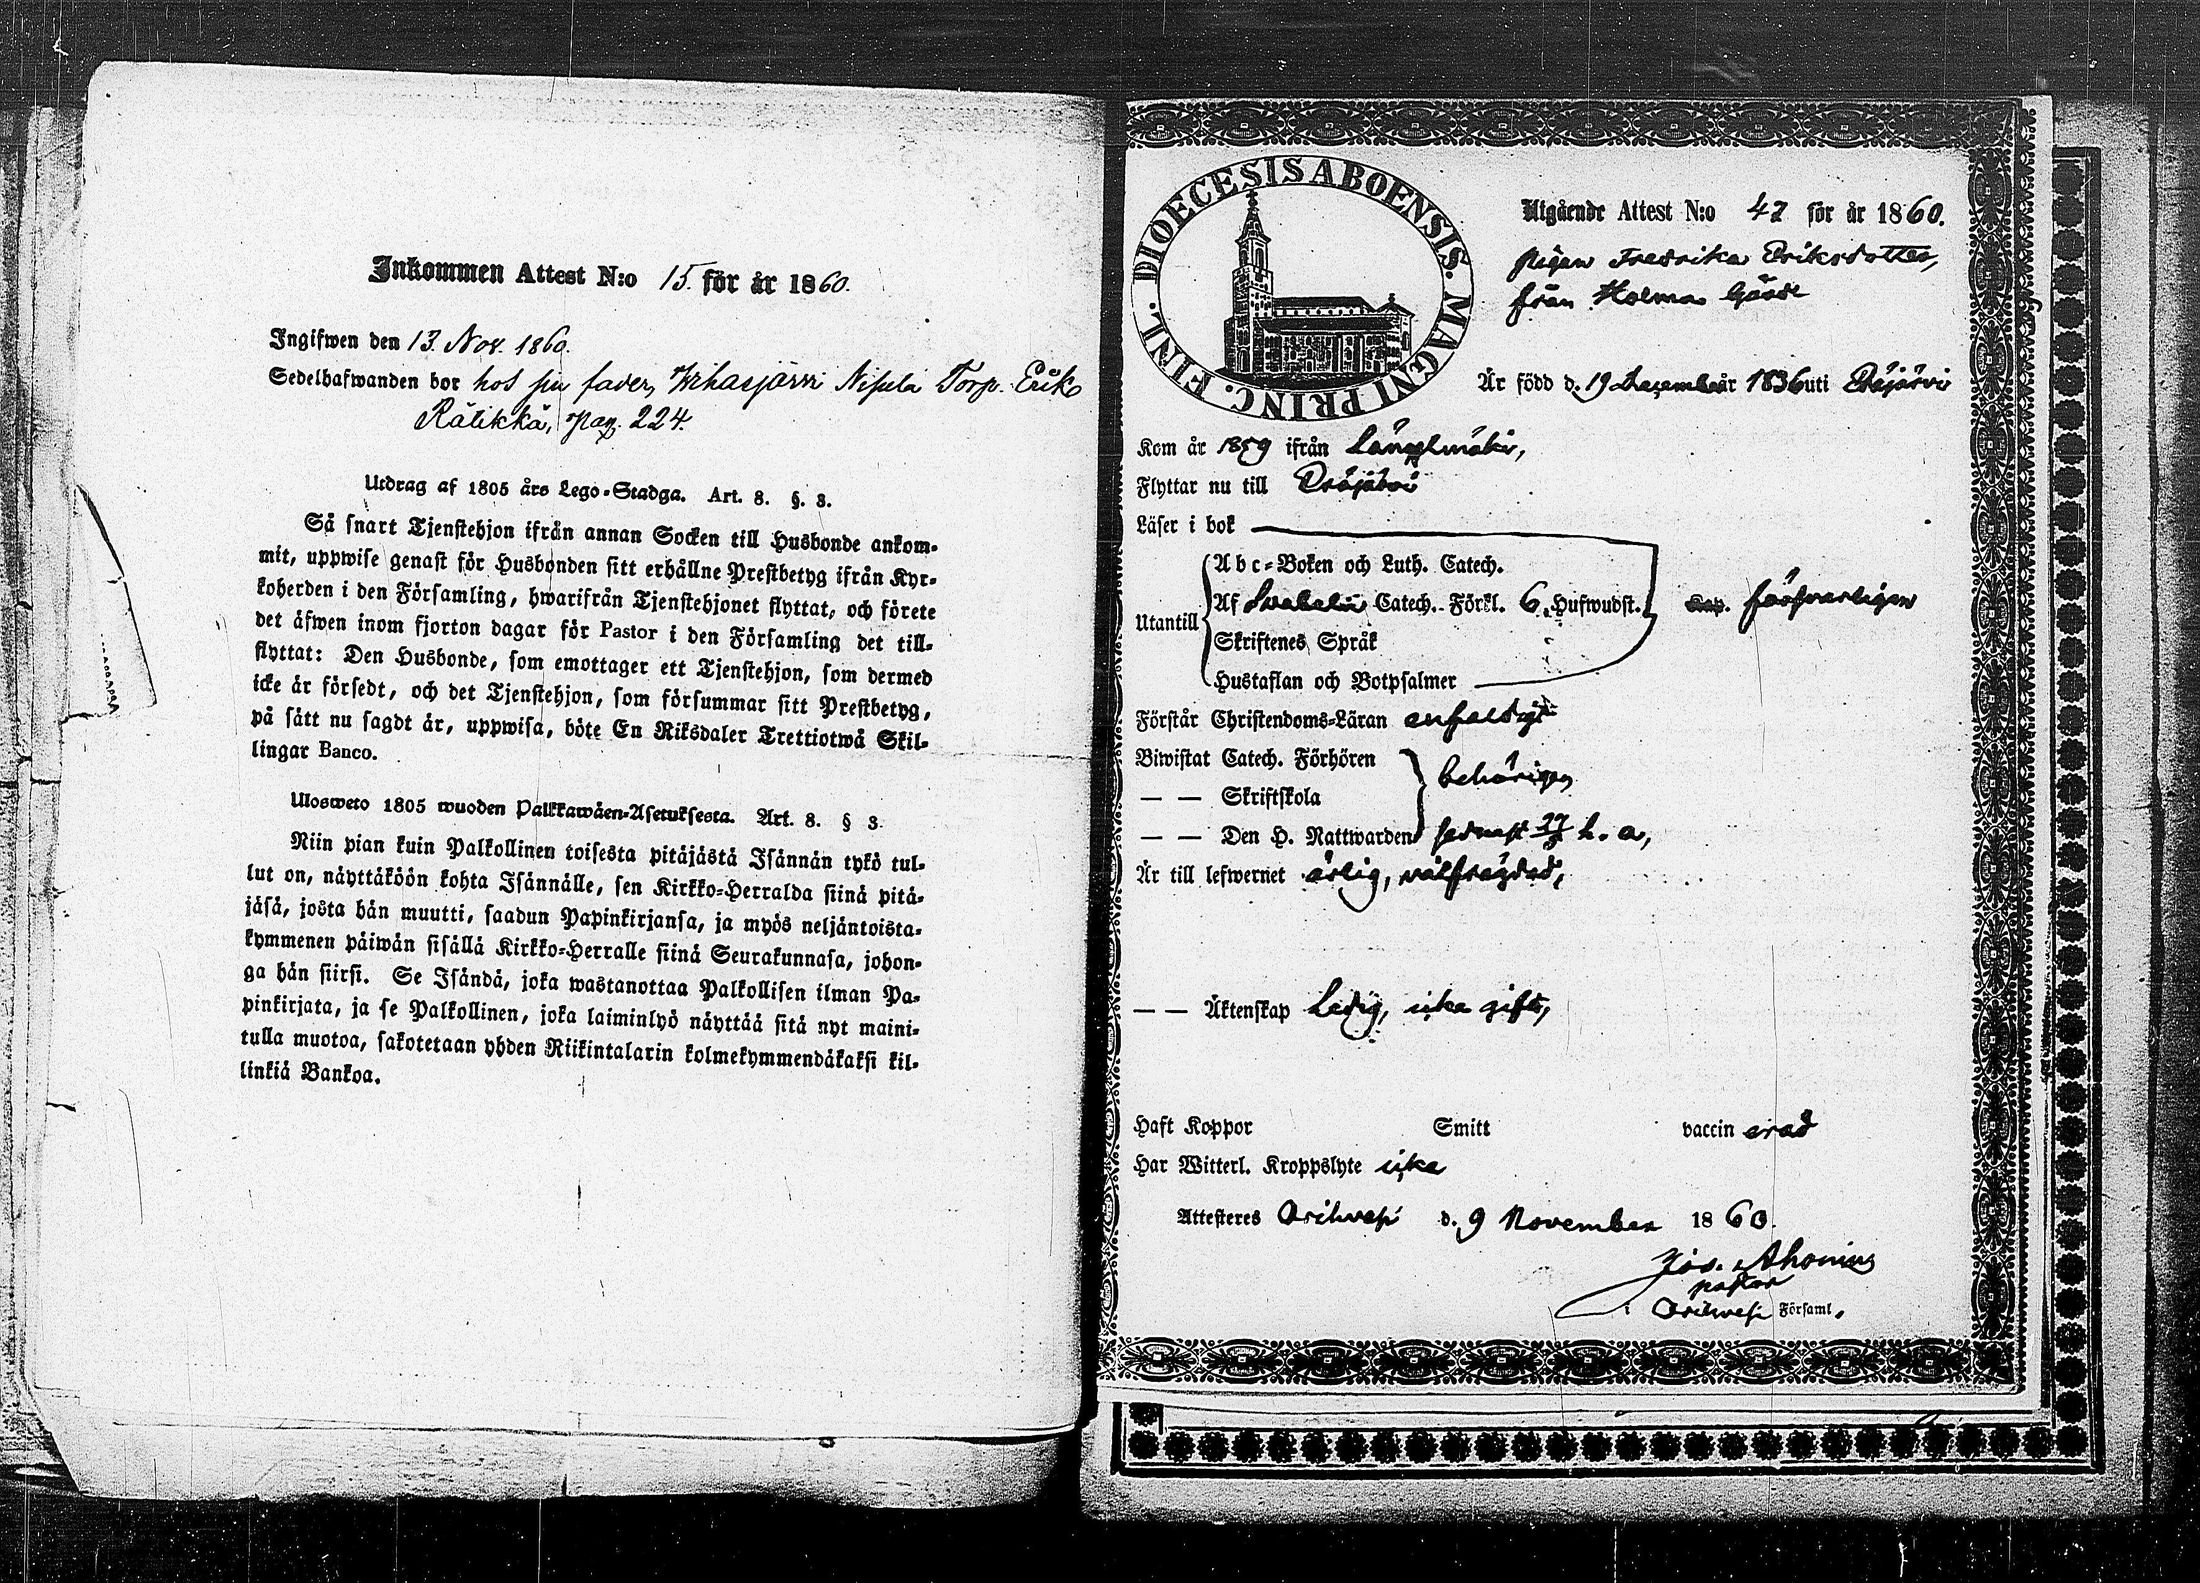 Inkommen Attest N:o 15. för år 1860.
Ingifwen den 13. Nov. 1860.
Sedelhafwanden bor hos sin fader, Wihasjärvi Nisula Torp. Erik
Rälikkä, pag. 224.
Utdrag af 1805 års Lego-Stadga. Art. 8. §. 3.
Så snart Tjenstehjon ifrån annan Socken till Husbonde ankom-
mit, uppwise genast för Husbonden sitt erhållne Prestbetyg ifrån Kyr-
koherden i den Församling, hwarifrån Tjenstehjonet flyttat, och förete
det äfwen inom fjorton dagar för Pastor i den Församling det till-
flyttat: Den Husbonde, som emottager ett Tjenstehjon, som dermed
icke är försedt, och det Tjenstehjon, som försummar sitt Prestbetyg,
på sätt nu sagdt är, uppwisa, böte En Riksdaler Trettiotwå Skil-
lingar Banco.
Ulosweto 1805 wuoden Palkkawäen-Asetuksesta. Art. 8. § 3.
Niin pian kuin Palkollinen toisesta pitäjästä Isännän tykö tul-
lut on, näyttäköön kohta Isännälle, sen Kirkko-Herralda siinä pitä-
jäsä, josta hän muutti, saadun Papinkirjansa, ja myös neljäntoista-
kymmenen päiwän sisällä Kirkko-Herralle siinä Seurakunnasa, johon-
ga hän siirsi. Se Isändä, joka wastanottaa Palkollisen ilman Pa-
pinkirjata, ja se Palkollinen, joka laiminlyö näyttää sitä nyt maini-
tulla muotoa, sakotetaan yhden Riikintalarin kolmekymmendäkaksi kil-
linkiä Bankoa.
DIOECESIS ABOENSIS. MAGNI PRINC. FINL.
Utgående Attest N:o 47 för år 1860.
pigan Fredrika Eriksdotter,
från Holma Gärde
Är född d. 19 December år 1836 uti Eräjärvi
Kom år 1859 ifrån Längelmäki,
Flyttar nu till Eräjärvi
Läser i bok
Abc-Boken och Luth. Catech.
Utantill Af Svebelii Catech. Förkl. 6. Hufwudst. Kap. försvarligen
Skriftenes Språk
Hustaflan och Botpsalmer
Förstår Christendoms-Läran enfaldigt
Biwistat Catech. Förhören behörigen
— — Skriftskola
— — Den H. Nattwarden senast h. a,
Är till lefwernet ärlig, välfrägdad,
— — Äktenskap Ledig, icke gift,
Haft Koppor Smitt vaccinerad
Har Witterl. Kroppslyte icke
Attesteres Orihvesi d. 9 November 1860.
Jos. Ahonius
pastor
i Orihvesi Församl.